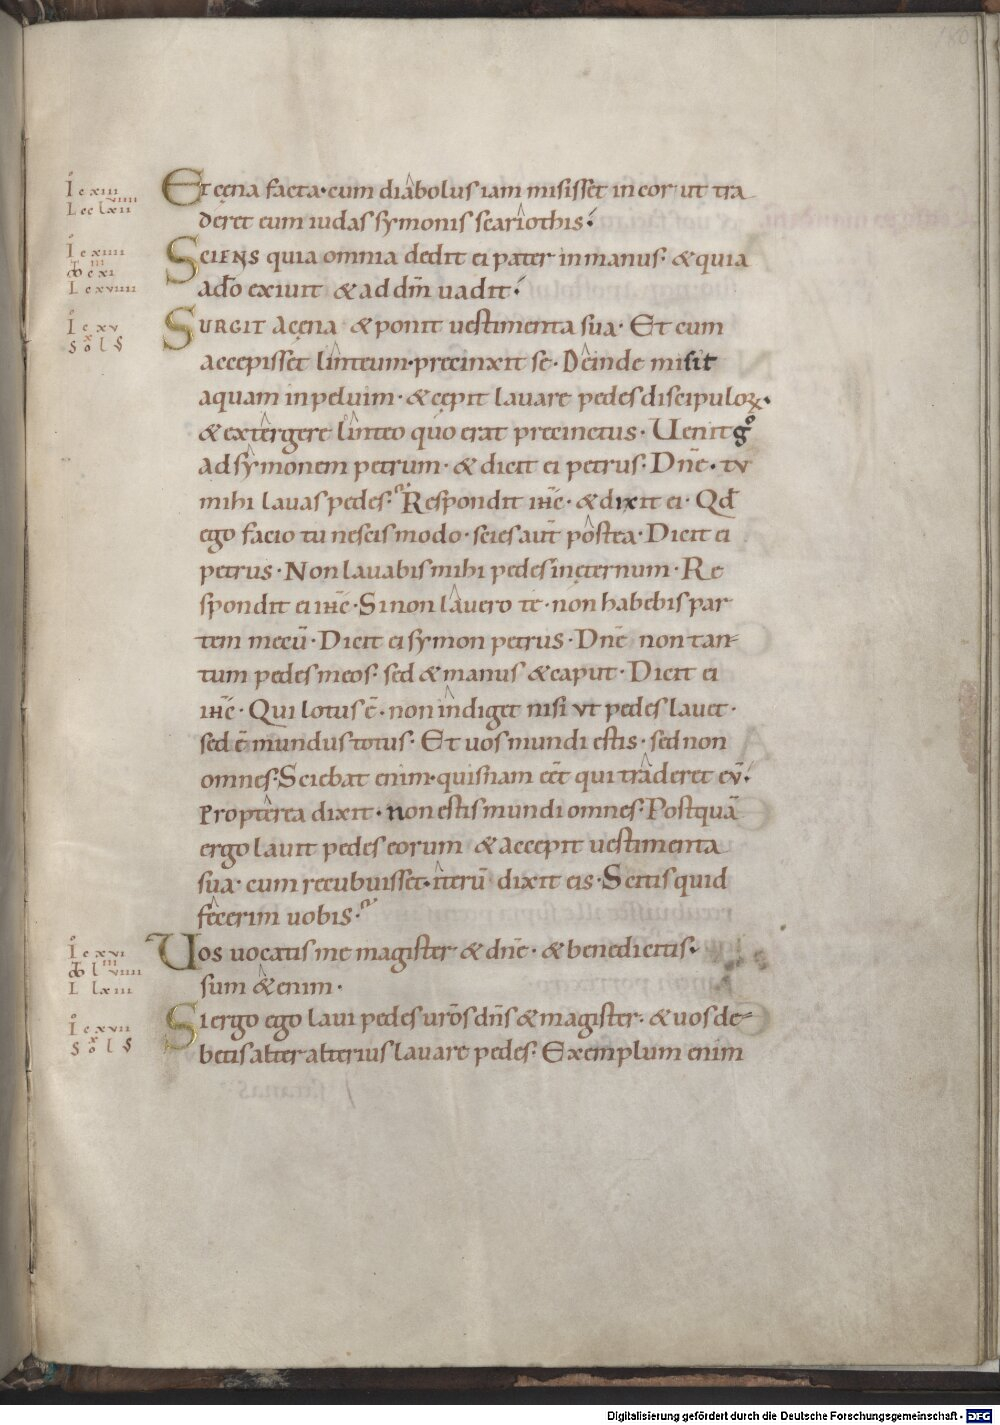 180
Et cęna facta· cum diabolus iam misisset in cor ut tra
deret eum iudas symonis scariothis·
Sciens quia omnia dedit ei pater in manus· & quia
a dō exiuit & ad dm̄ uadit·
Surgit a cęna & ponit uestimenta sua· Et cum
accepisset linteum· precinxit se· Deinde misit
aquam in peluim· & cępit lauare pedes discipuloꝝ·
& extergere linteo quo erat precinctus· Uenit gͦ
ad symonem petrum· & dicit ei petrus· Dn̄e· tu
mihi lauas pedes· Respondit ihc̄· & dixit ei· Qd̄
ego facio tu nescis modo· scies aut̄ postea· Dicit ei
petrus· Non lauabis mihi pedes in ęternum· Re
spondit ei ihc̄· Si non lauero te· non habebis par
tem mecū· Dicit ei symon petrus· Dn̄e non tan-
tum pedes meos· sed & manus & caput· Dicit ei
ihc̄· Qui lotus ē· non indiget nisi ut pedes lauet·
sed ē mundus totus· Et uos mundi estis· sed non
omnes· Sciebat enim· quisnam eēt qui traderet eū·
Propterea dixit· non estis mundi omnes· Postquā
ergo lauit pedes eorum & accepit uestimenta
sua· cum recubuisset· iterū dixit eis· Scitis quid
fecerim uobis·
Uos uocatis me magister & dn̄e· & benedicitis·
sum & enim·
Si ergo ego laui pedes ur̄os dn̄s & magister· & uos de-
betis alter alterius lauare pedes· Exemplum enim
Io c xiii
L cc lxii
Io c xiiii
L c xviiii
Io c xv
Solṡ
Io c xvi
L lxiii
Io c xvii
Solṡ
Digitalisierung gefördert durch die Deutsche Forschungsgemeinschaft - DFG